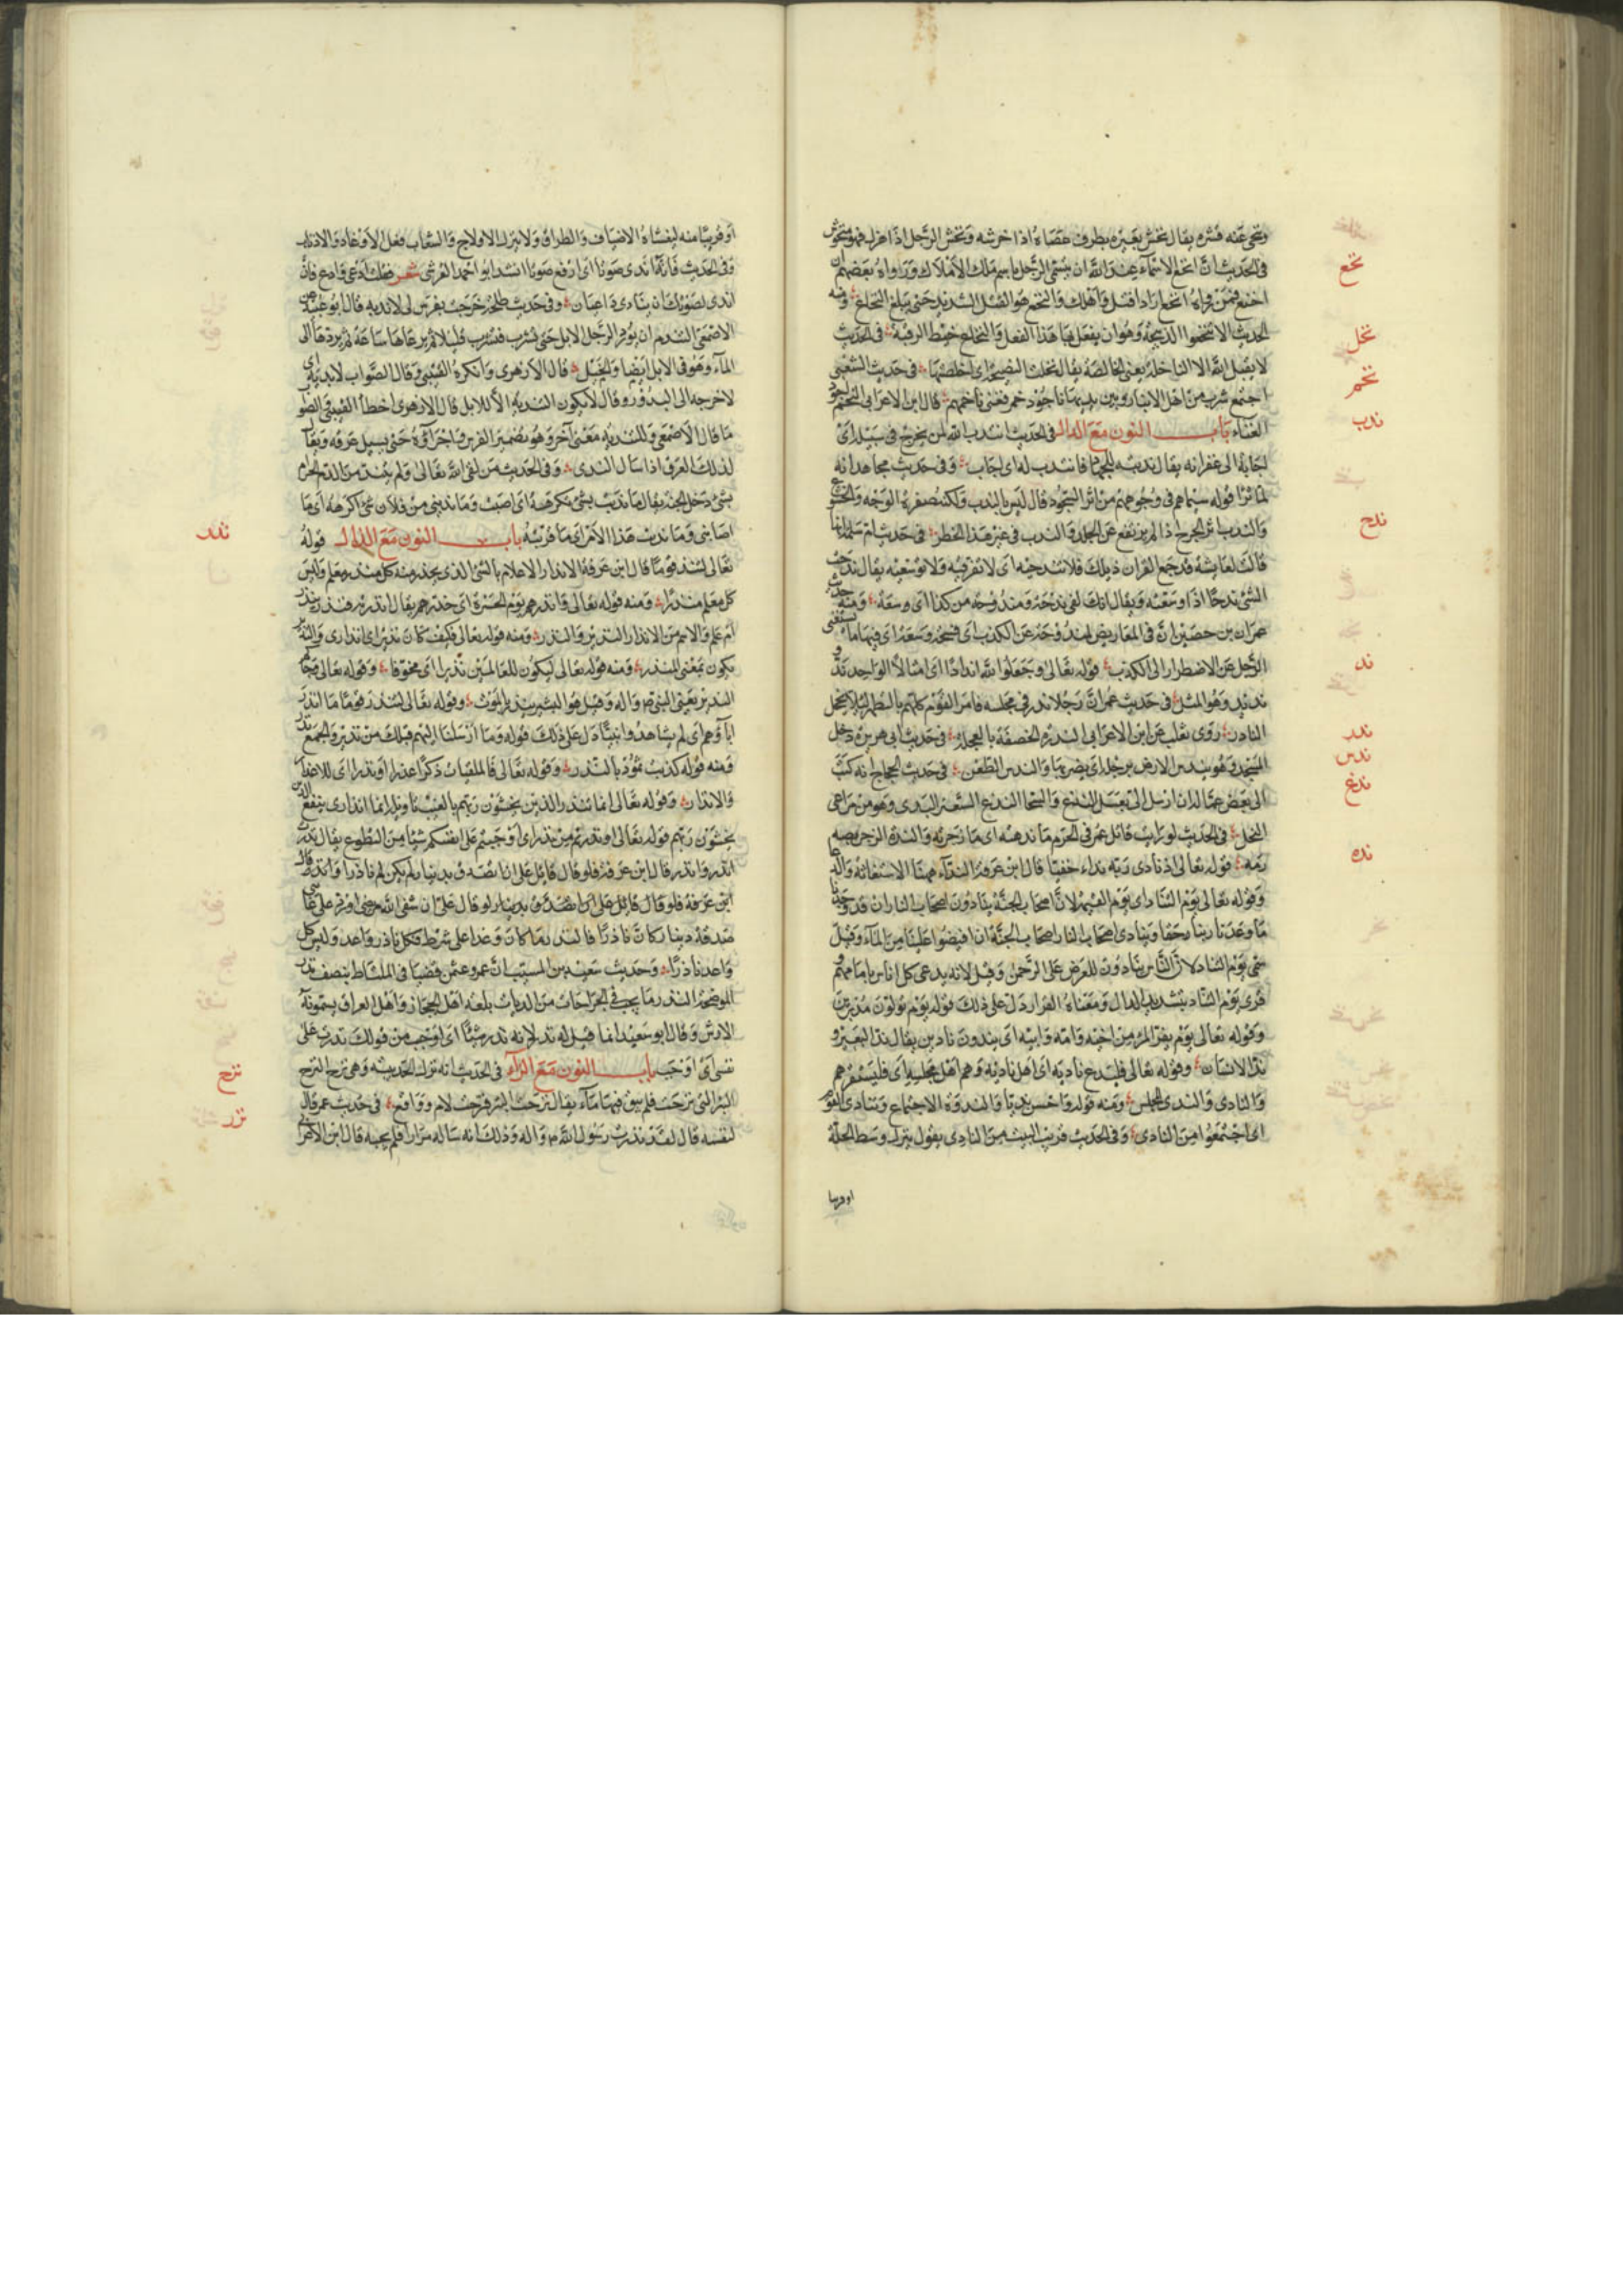 ونحى عنه قشره يقال نخش بعيره بطرف عصاه اذا خرشه ونخش الرجل اذا هزل فهو منخوش
نخع
فى الحديث ان انخع الاسماء عند الله ان يتسمى الرجل باسم ملك الاملاك ورواه بعضهم ان
اخنع فمن رواه انخع اراد اقتل واهلك والنخع هو القتل الشديد حتى يبلغ النخاع ومنه
نخل
الحديث الا لا تنخعوا الذبيحة وهو ان يفعل بها هذا الفعل والنخاع خيط الرقبة فى الحديث
نخم
لا يقبل الله الا الناخلة يعنى الخالصة يقال نخلت النصيحة اى اخلصتها فى حديث الشعبى
اجتمع شرب من اهل الانبار وبين يديهم ناجود خمر فغنى ناخمهم قال ابن الاعرابى النخم اجود
ندب
الغناء باب النون مع الدال فى الحديث انتدب الله لمن يخرج فى سبيله اى
اجابه الى غفرانه يقال ندبته للجهاد فانتدب له اى اجاب وفى حديث مجاهد انه
لما قرأ قوله سيماهم فى وجوههم من اثر السجود قال ليس بالندب ولكنه صفرة الوجه والخشوع
ندح
والندب اثر الجرح اذا لم يرتفع عن الجلد والندب فى غير هذا الخطر فى حديث ام سلمة انها
قالت لعايشة قد جمع القران ذيلك فلا تندحيه اى لا تفرقيه ولا توسعيه يقال ندحت
الشئ ندحا اذا وسعته ويقال انك لفى ندحة ومندوحة من كذا اى وسعة ومنه حديث
عمران بن حصين ان فى المعاريض لمندوحة عن الكذب اى فسحة وسعة اى فيها ما يستغنى
ند
الرجل عن الاضطرار الى الكذب قوله تعالى وجعلوا لله اندادا اى امثالا الواحد ند
ندر
ند نديد وهو المثل فى حديث عمر ان رجلا ندر فى مجلسه فامر القوم كلهم بالتطهر لئلا يخجل
ندس
النادر روى ثعلب عن ابن الاعرابى الندرة الخضفة بالعجلة فى حديث ابى هريرة دخل
ندغ
المسجد وهو يندس الارض برجله اى يضرب بها والندس الطعن فى حديث الحجاج انه كتب
الى بعض عماله ان ارسل الى بعسل الندغ والسحا الندغ السعتر البرى وهو من مراعى
نده
النحل فى الحديث لو رايت قاتل عمر فى الحرم ما ندهته اى ما زجرته والنده الزجر بصه
ومه قوله تعالى اذ نادى ربه نداء خفيا قال ابن عرفة النداء ههنا الاستغاثة والدعا
وقوله تعالى يوم التناد اى يوم القيمة لان اصحاب الجنة ينادون اصحاب النار ان قد وجدنا
ما وعدنا ربنا حقا وينادى اصحاب النار اصحاب الجنة ان افيضوا علينا من الماء وقيل
سمى يوم التناد لان الناس ينادون للعرض على الرحمن وقيل لانه يدعى كل اناس بامامهم و
قرى يوم التناد بتشديد الدال ومعناه الفرار دل على ذلك قوله يوم تولون مدبرين
وقوله تعالى يوم يفر المرء من اخيه وامه وابيه اى يندون نادين يقال ند البعير و
ند الانسان وقوله تعالى فليدع ناديه اى اهل ناديه وهم اهل مجلسه اى فليستنصرهم
والنادى والندى المجلس ومنه قوله واحسن نديا والندوة الاجتماع وتنادى القوم
اى اجتمعوا من النادى وفى الحديث قريب البيت من النادى يقول ينزل وسط الحلة
او قريبا
او قريبا منه ليغشاه الاضياف والطراق ولا ينزل الاولاج والشعاب فعل الاوغاد والانذال
وفى الحديث فانه اندى صوتا اى ارفع صوتا انشد ابو احمد القرشى شعر فقلت ادعى وادع فان
اندى لصوت ان ينادى داعيان وفى حديث طلحة خرجت بفرس لى لانديه قال ابو عبيد عن
الاصمعى التندية ان يورد الرجل الابل حتى تشرب فتشرب قليلا ثم يرعاها ساعة ثم يردها الى
الماء وهو فى الابل ايضا والخيل قال الازهرى وانكره القتيبى وقال الصواب لابديه اى
لاخرجه الى البدو وقال لا يكون التندية الا للابل قال الازهرى اخطأ القتيبى والصواب
ما قال الاصمعى وللتندية معنى آخر وهو تضمير الفرس واجراؤه حتى يسيل عرقه ويقال
لذلك العرق اذا سال الندى وفى الحديث من لقى الله تعالى ولم يتند من الدم الحرام
بشئ دخل الجنة يقال ما نديت بشئ تكرهه اى اصبت وما ندينى من فلان شئ اكرهه اى ما
ندر
اصابنى وما نديت هذا الامر اى ما قربته باب النون مع الذال قوله
تعالى لتنذر قوما قال ابن عرفة الانذار الاعلام بالشئ الذى يحذر منه كل منذر معلم وليس
كل معلم منذرا ومنه قوله تعالى وانذرهم يوم الحسرة اى حذرهم يقال انذرته فنذر ينذر
اى علم والاسم من الانذار النذير والنذر ومنه قوله تعالى فكيف كان نذير اى انذارى والنذير
يكون بمعنى المنذر ومنه قوله تعالى ليكون للعالمين نذيرا اى مخوفا وقوله تعالى وجاءكم
النذير يعنى النبى ص واله وقيل هو الشيب ينذر بالموت وقوله تعالى لتنذر قوما ما انذر
اباؤهم اى لم يشاهدوا نبيا دل على ذلك قوله وما ارسلنا اليهم قبلك من نذير والجمع نذر
ومنه قوله كذبت ثمود بالنذر وقوله تعالى فالملقيات ذكرا عذرا او نذرا اى للاعذار
والانذار وقوله تعالى انما تنذر الذين يخشون ربهم بالغيب تاويله انما انذارى ينفع الذين
يخشون ربهم قوله تعالى او نذرتم من نذر اى اوجبتم على انفسكم شيئا من التطوع يقال نذرت
انذر وانذر قال ابن عرفة فلو قال قائل على ان اتصدق بدينار لم يكن ناذرا وانذر قال
ابن عرفة فلو قال قائل على ان اتصدق بدينار لو قال على ان شفى الله مرضى او رد على غائبى
صدقة دينار كان ناذرا فالنذر ما كان وعدا على شرط فكل ناذر واعد وليس كل
واعد ناذرا وحديث سعيد بن المسيب ان عمر وعثمن قضيا فى الملطاط بنصف نذر
الموضحة النذر ما يجب فى الجراحات من الديات بلغة اهل الحجاز واهل العراق يسمونه
الارش وقال ابو سعيد انما قيل له نذر لانه نذر شيئا اى اوجب من قولك نذرت على
نزح
نفسى اى اوجبت باب النون مع الزاء فى الحديث انه نزل الحديبية وهى نزح النزح
نزر
البئر التى نزحت فلم يبق فيها ماء يقال نزحت البئر فنزحت لازم وواقع فى حديث عمر قال
لنفسه قال لقد نزرت رسول الله ص واله وذلك انه ساله مرارا فلم يجبه قال ابن الاعرابى